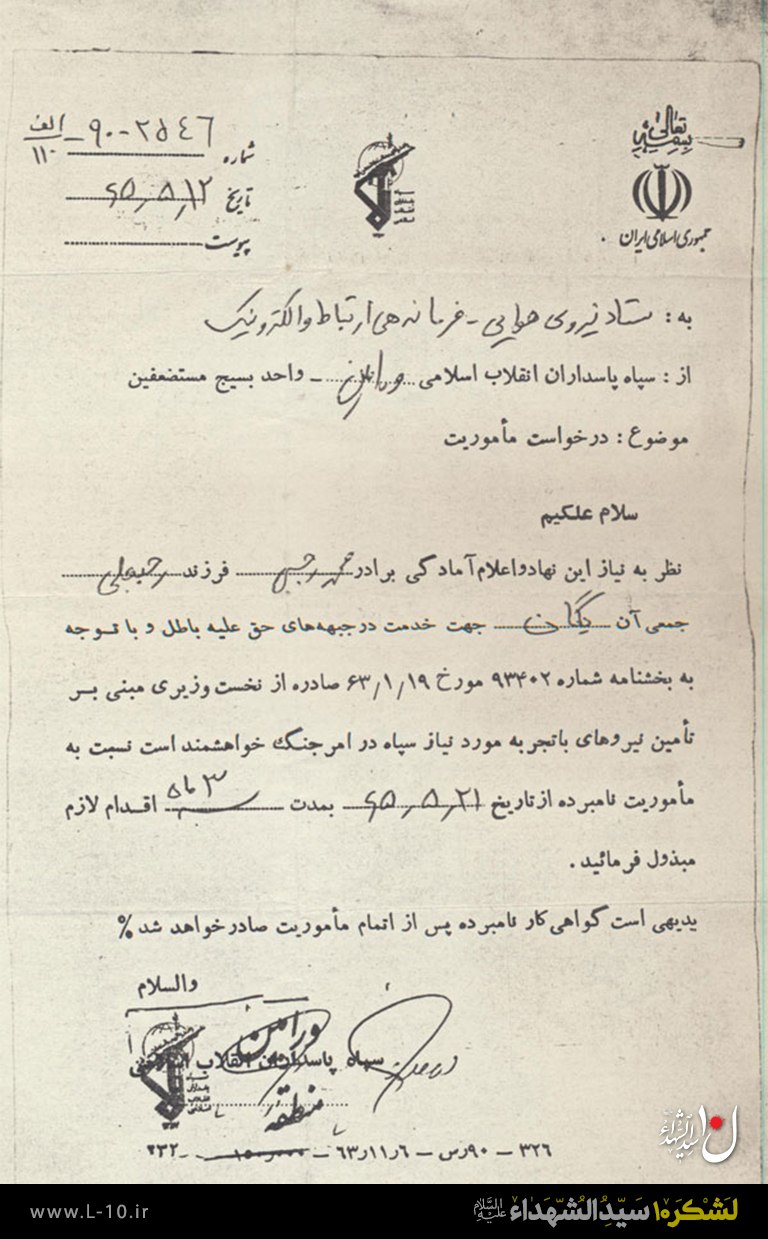 بسمه تعالی
جمهوری اسلامی ایران
شماره ۹۰-۲۵۴۶ الف/۱۱۰
تاریخ ۶۵/۵/۱۲
پیوست
به : ستاد نیروی هوایی - فرماندهی ارتباط و الکترونیک
از : سپاه پاسداران انقلاب اسلامی ورامین - واحد بسیج مستضعفین
موضوع : درخواست مأموریت
سلام علکیم
نظر به نیاز این نهاد واعلام آمادگی برادر محمد رجبی فرزند رجبعلی
جمعی آن یگان جهت خدمت در جبهه‌های حق علیه باطل و با توجه
به بخشنامه شماره ۹۳۴۰۲ مورخ ۶۳/۱/۱۹ صادره از نخست وزیری مبنی بر
تأمین نیروهای باتجربه مورد نیاز سپاه در امر جنگ خواهشمند است نسبت به
مأموریت نامبرده از تاریخ ۶۵/۵/۲۱ بمدت ۳ ماه اقدام لازم
مبذول فرمائید .
بدیهی است گواهی کار نامبرده پس از اتمام مأموریت صادر خواهد شد %
والسلام
سپاه پاسداران انقلاب
ورامین
منطقه
۳۲۶ - ۹۰رس - ۶ر۱۱ر۶۳ -
لشکر۱۰ سیدالشهداء علیه السلام
www.L-10.ir